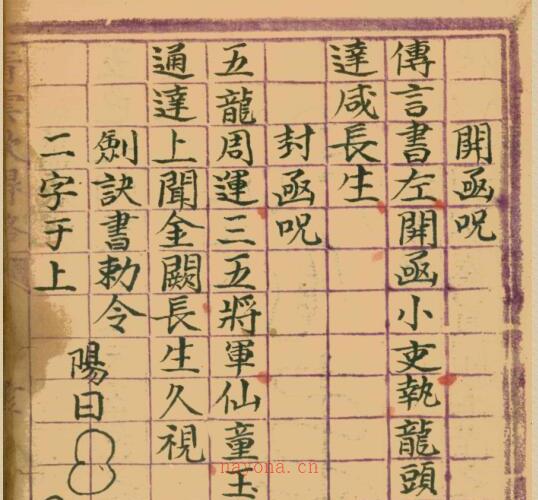 開函呪
傳言書左開函小吏執龍頭
達咸長生
封函呪
五龍周運三五將軍仙童玉
通達上聞金闕長生久視
劍訣書勅令
二字于上
陽日
nayona.cn